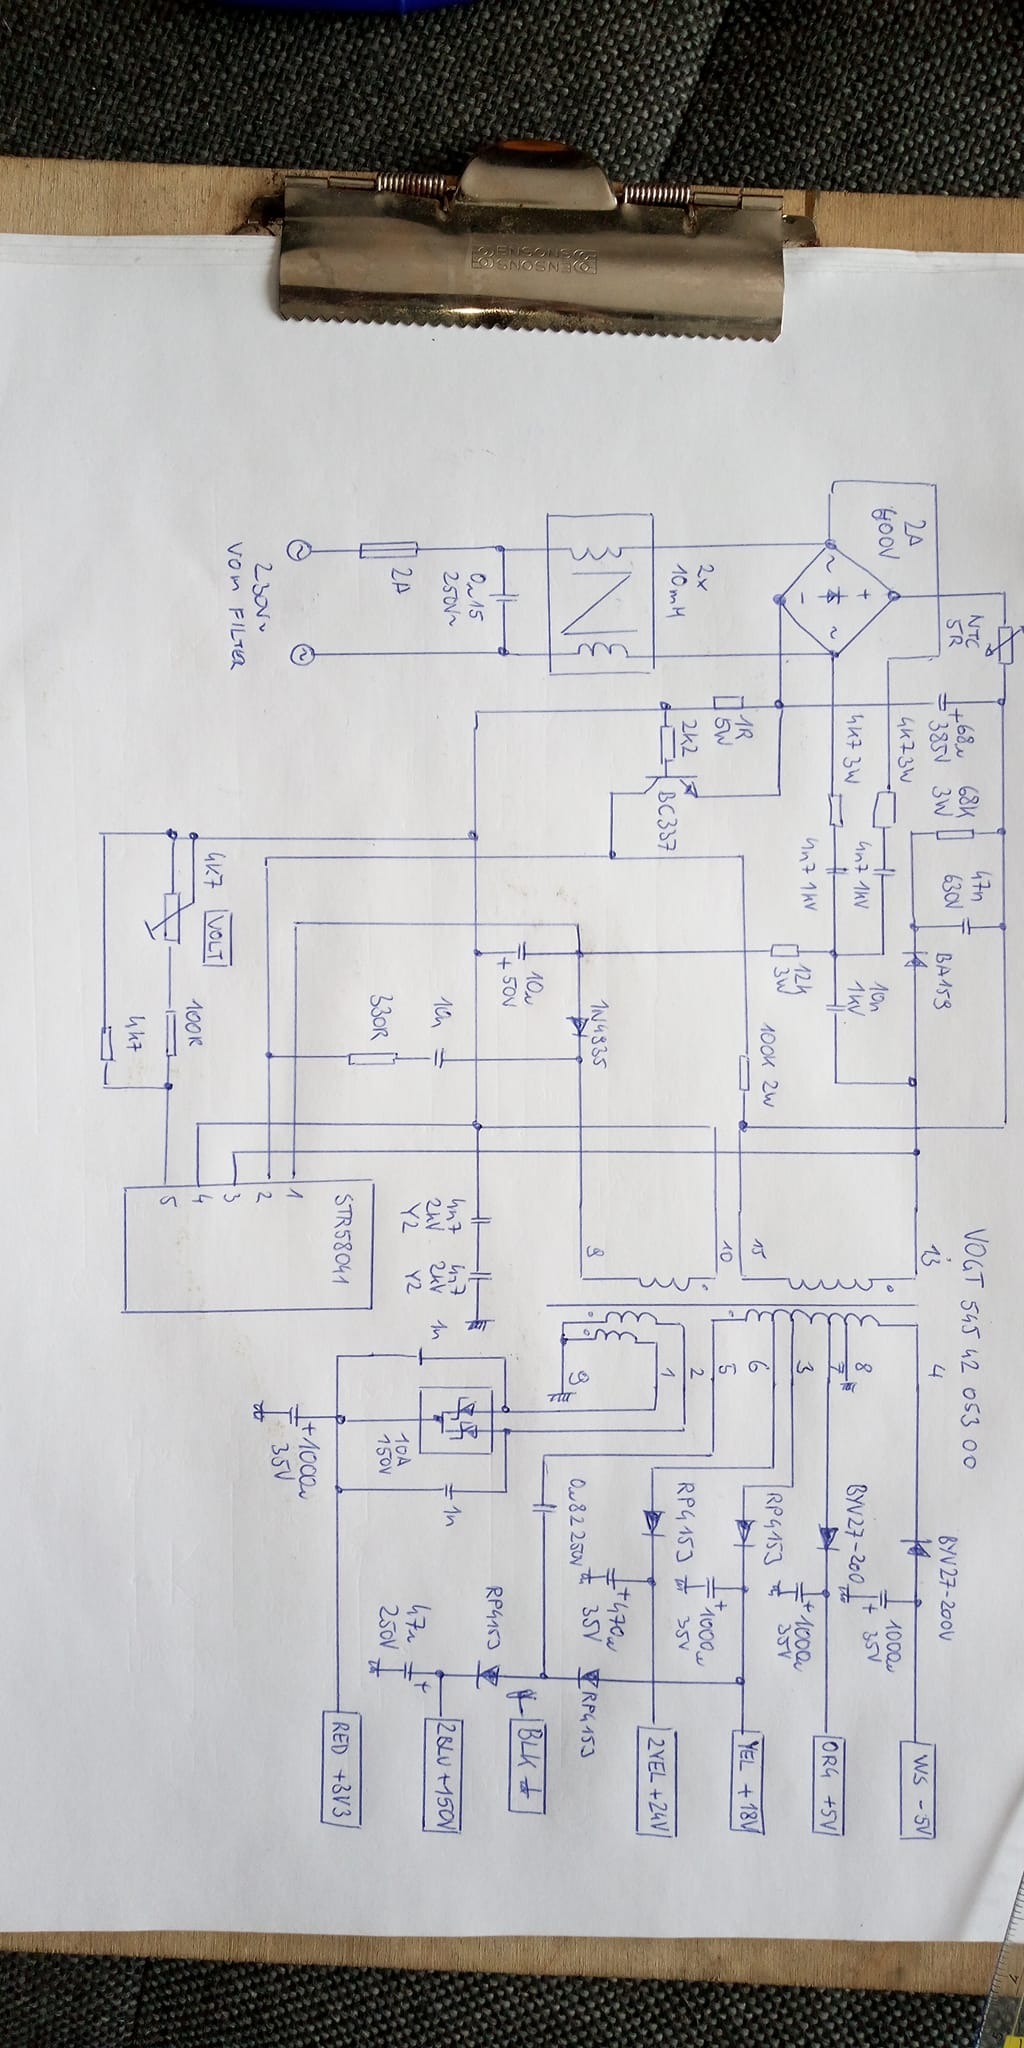 ENSONS
ENSONS
VOGT 545 42 053 00
2A
400V
NTC
5R
+68u
385V
68K
3W
47n
630V
BA159
4K7 3W
4K7 3W
4n7 1kV
4n7 1kV
10n
1kV
12k
3W
100K 2W
2x
10mH
1R
5W
2K2
BC337
0u15
250V~
2A
230V~
VOM FILTER
10u
+ 50V
10n
330R
4K7
VOLT
100R
4k7
STR58041
1
2
3
4
5
4n7
2kV
Y2
4n7
2kV
Y2
13
15
10
4
8
7
3
6
5
2
1
9
1n
10A
150V
1n
+1000u
35V
0u82 250V
RP415J
+470u
35V
RP415J
+1000u
35V
BYV27-200
+1000u
35V
BYV27-200V
1000u
+ 35V
RP415J
RP415J
47u
250V
+
WS -5V
OR4 +5V
YEL +18V
2YEL +24V
BLK
2BLU +150V
RED +3V3